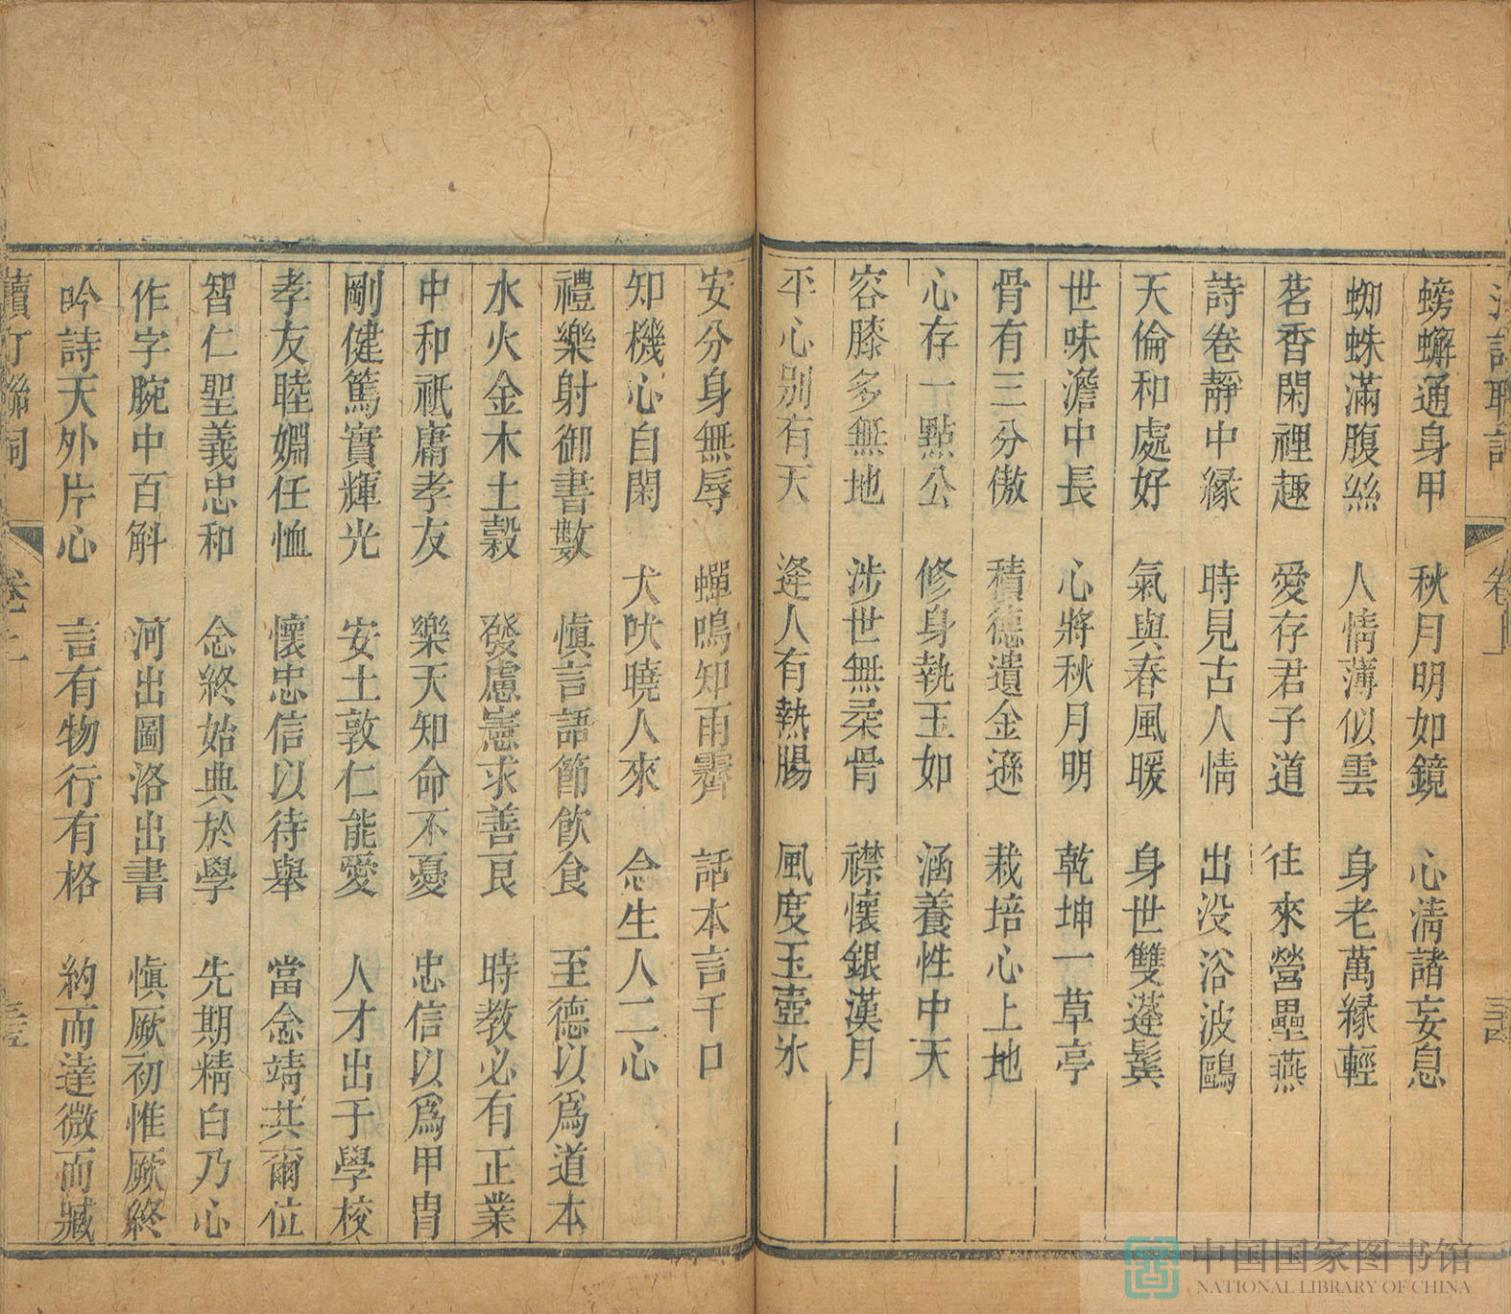 螃蠏通身甲　秋月明如鏡　心淸諸妄息
蜘蛛滿腹絲　人情薄似雲　身老萬緣輕
茗香閑裡趣　愛存君子道　往來營壘燕
詩卷靜中緣　時見古人情　出没浴波鷗
天倫和處好　氣與春風暖　身世雙蓬鬂
世味澹中長　心將秋月明　乾坤一草亭
骨有三分傲　積德遺金遜　栽培心上地
心存一點公　修身執玉如　涵養性中天
容膝多無地　涉世無柔骨　襟懷銀漢月
平心別有天　逢人有熱腸　風度玉壺氷
安分身無辱　蟬鳴知雨霽　話本言千口
知機心自閑　犬吠曉人來　念生人二心
禮樂射御書數　愼言語節飮食　至德以爲道本
水火金木土穀　發慮憲求善良　時教必有正業
中和祇庸孝友　樂天知命不憂　忠信以爲甲冑
剛健篤實輝光　安土敦仁能愛　人才出于學校
孝友睦婣任恤　懷忠信以待舉　當念靖共爾位
智仁聖義忠和　念終始典於學　先期精白乃心
作字腕中百斛　河出圖洛出書　愼厥初惟厥終
吟詩天外片心　言有物行有格　約而達微而臧
卷上
中国国家图书馆
NATIONAL LIBRARY OF CHINA